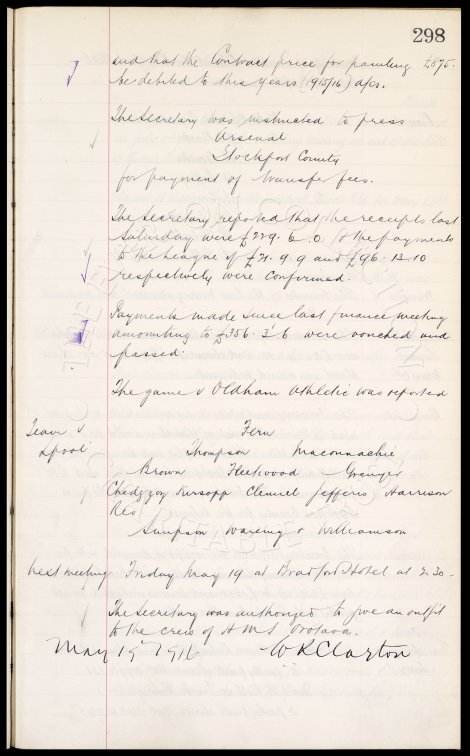 298
and that the Contract price for painting £875.
be debited to this years (1915/16) a/cs.
The Secretary was instructed to press
Arsenal
Stockport County
for payment of transfer fees.
The Secretary reported that the receipts last
Saturday were £229. 6. 0. & the payments
to the League of £21. 9. 9 and £96. 13. 10
respectively were confirmed.
Payments made since last finance meeting
amounting to £356. 3. 6 were vouched and
passed.
The game v Oldham Athletic was reported
Team v Fern
Lpool Thompson Maconnachie
Brown Fleetwood Grenyer
Chedgzoy Kirsopp Clennell Jefferis Harrison
Res
Simpson, Wareing & Williamson
Next meeting Friday May 19 at Bradford Hotel at 2.30-
The Secretary was authorized to give an outfit
to the crew of H M S Orotava.
May 19 1916 W R Clayton